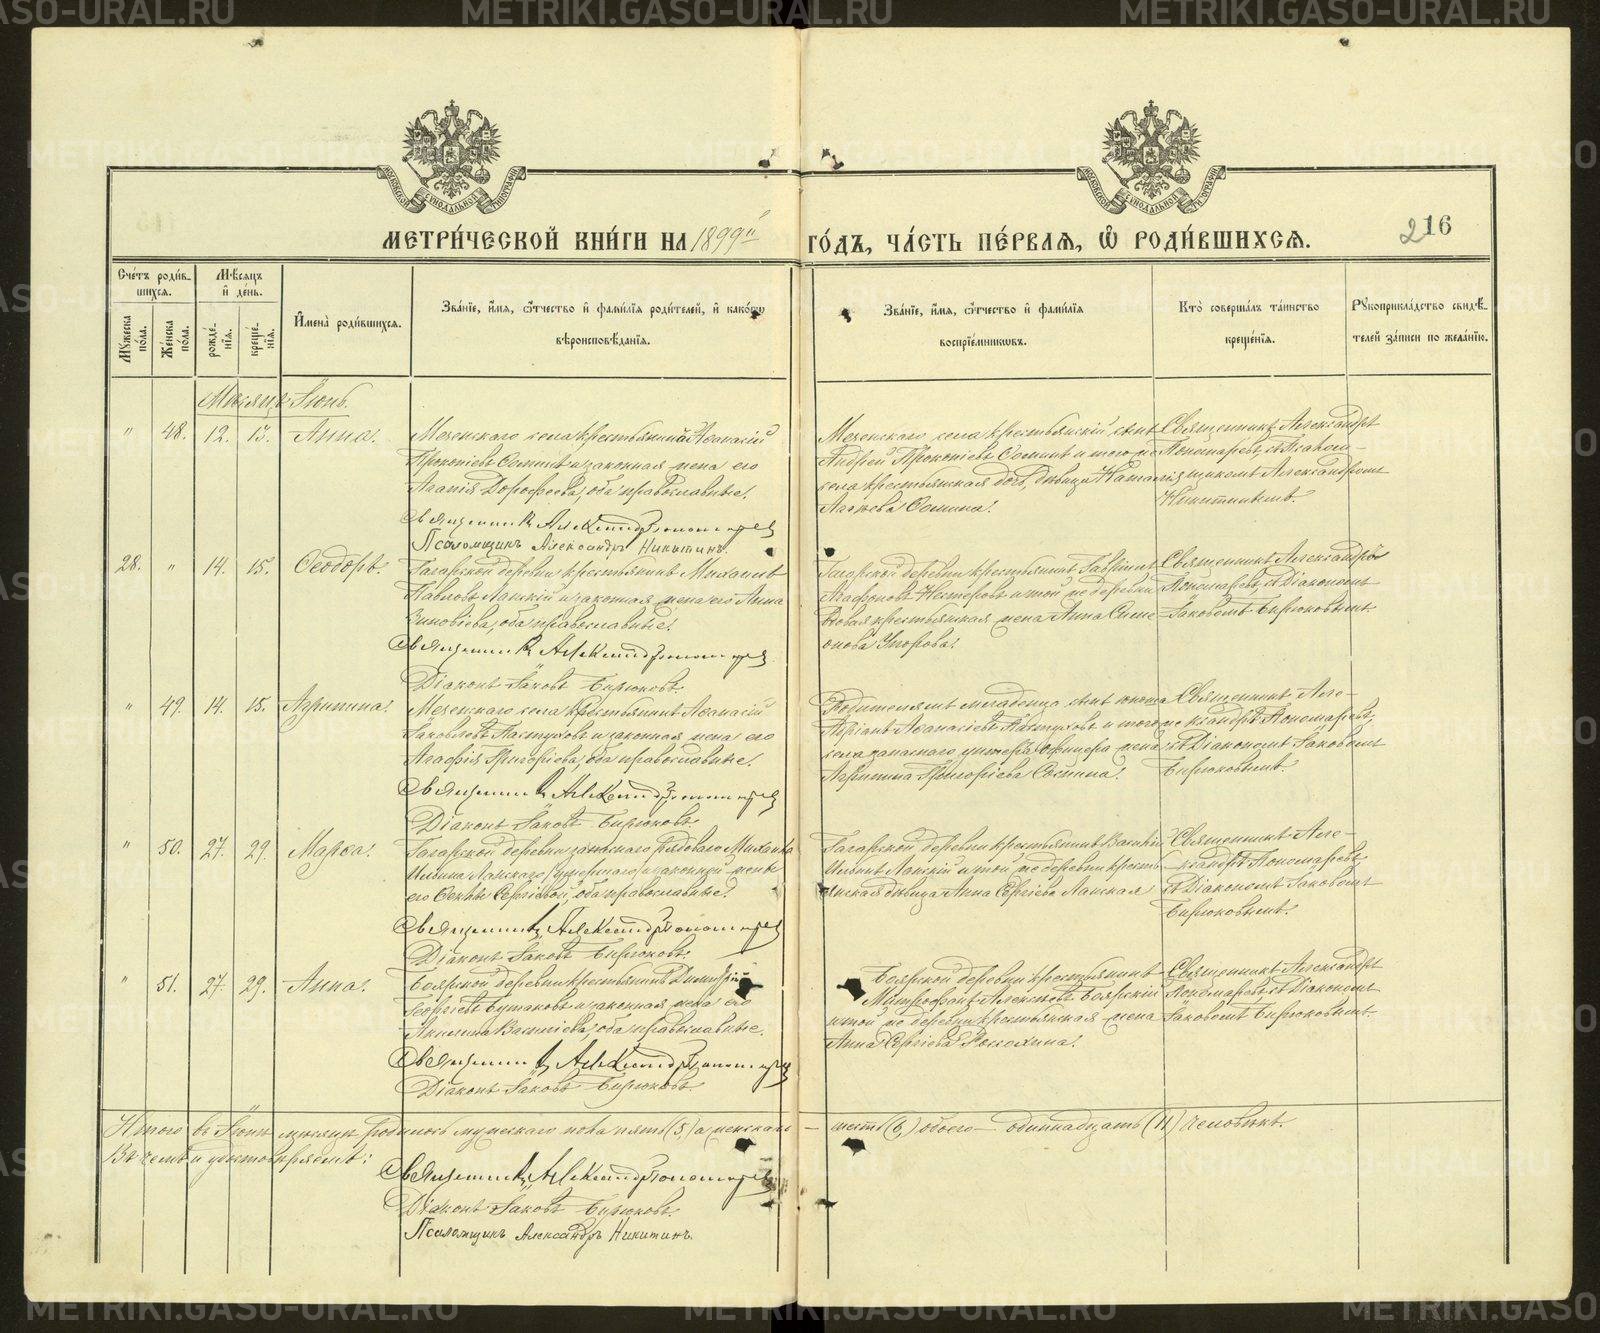 METRIKI.GASO-URAL.RU
МЕТРИ́ЧЕСКОЙ КНИ́ГИ НА 1899й ГО́ДЪ, ЧА́СТЬ ПЕ́РВАЯ, Ѡ РОДИ́ВШИХСЯ.
216
Сче́тъ роди́вшихся.
Му́жеска по́ла.
Же́нска по́ла.
Мѣ́сяцъ и де́нь.
рожде́нїя.
креще́нїя.
Имена̀ роди́вшихся.
Зва́нїе, и́мя, ѻ́тчество и фами́лїя роди́телей, и како́гѡ вѣроисповѣ́данїя.
Зва́нїе, и́мя, ѻ́тчество и фами́лїя воспрїе́мникѡвъ.
Кто̀ соверша́лъ та́инство креще́нїя.
Рукоприкла́дство свидѣ́телей за́писи по жела́нїю.
Мѣсяцъ Іюнь.
" 48. 12. 13. Анна.
Мезенскаго села крестьянинъ Аѳанасій
Прокопіевъ Соминъ и законная жена его
Агапія Дороѳеева, оба православные.
Священникъ Александръ Пономаревъ
Псаломщикъ Александръ Никитинъ.
Мезенскаго села крестьянскій сынъ
Андрей Прокопіевъ Соминъ и того же
села крестьянская дочь, дѣвица Наталія
Сомина.
Священникъ Александръ
Пономаревъ съ Псаломщикомъ Александромъ
Никитинымъ.
28. " 14. 15. Ѳеодоръ.
Гагарской деревни крестьянинъ Михаилъ
Павловъ Ламскій и законная жена его Анна
Зиновіева, оба православные.
Священникъ Александръ Пономаревъ
Діаконъ Іаковъ Бирюковъ.
Гагарской деревни крестьянинъ Гавріилъ
Агаѳоновъ Нестеровъ и той же деревни
крестьянская жена Анна
Священникъ Александръ
Пономаревъ съ Діакономъ
Іаковомъ Бирюковымъ.
" 49. 14. 15. Агрипина.
Мезенскаго села крестьянинъ Аѳанасій
Іаковлевъ Пастуховъ и законная жена его
Агаѳія Григоріева, оба православные.
Священникъ Александръ Пономаревъ
Діаконъ Іаковъ Бирюковъ.
Родителямъ младенца сынъ
Аѳанасіевъ Пастуховъ и того же
села запаснаго унтеръ-офицера жена
Агрипина Григоріева Сомина.
Священникъ Александръ Пономаревъ
съ Діакономъ Іаковомъ
Бирюковымъ.
" 50. 27. 29. Марѳа.
Гагарской деревни запаснаго рядоваго Михаила
Ильина Ламскаго (умершаго) и законной жены
его Сергіевой, оба православные.
Священникъ Александръ Пономаревъ
Діаконъ Іаковъ Бирюковъ.
Гагарской деревни крестьянинъ Василій
Ильинъ Ламскій и той же деревни крестьянская
дѣвица Анна Сергіева Ламская
Священникъ Александръ Пономаревъ
съ Діакономъ Іаковомъ
Бирюковымъ.
" 51. 27. 29. Анна.
Боярской деревни крестьянинъ Димитрій
Георгіевъ Бутаковъ и законная жена его
Акилина Васильева, оба православные.
Священникъ Александръ Пономаревъ
Діаконъ Іаковъ Бирюковъ.
Боярской деревни крестьянинъ
Митрофанъ Алексѣевъ Боярскій
и той же деревни крестьянская жена
Анна Сергіева
Священникъ Александръ
Пономаревъ съ Діакономъ
Іаковомъ Бирюковымъ.
Итого въ Іюнѣ мѣсяцѣ родилось мужескаго пола пять (5) а женскаго – шесть (6) обоего – одиннадцать (11) человѣкъ.
Въ чемъ и удостовѣряемъ:
Священникъ Александръ Пономаревъ
Діаконъ Іаковъ Бирюковъ.
Псаломщикъ Александръ Никитинъ.